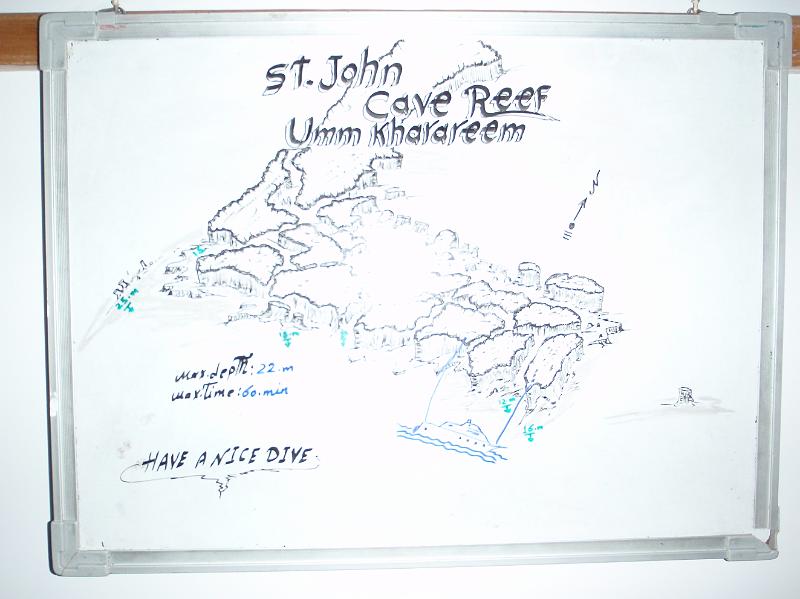 St. John
Cave Reef
Umm Kharareem
N
25.m
12.m
16.m
Max.depth: 22.m
Max.Time: 60.min
HAVE A NICE DIVE